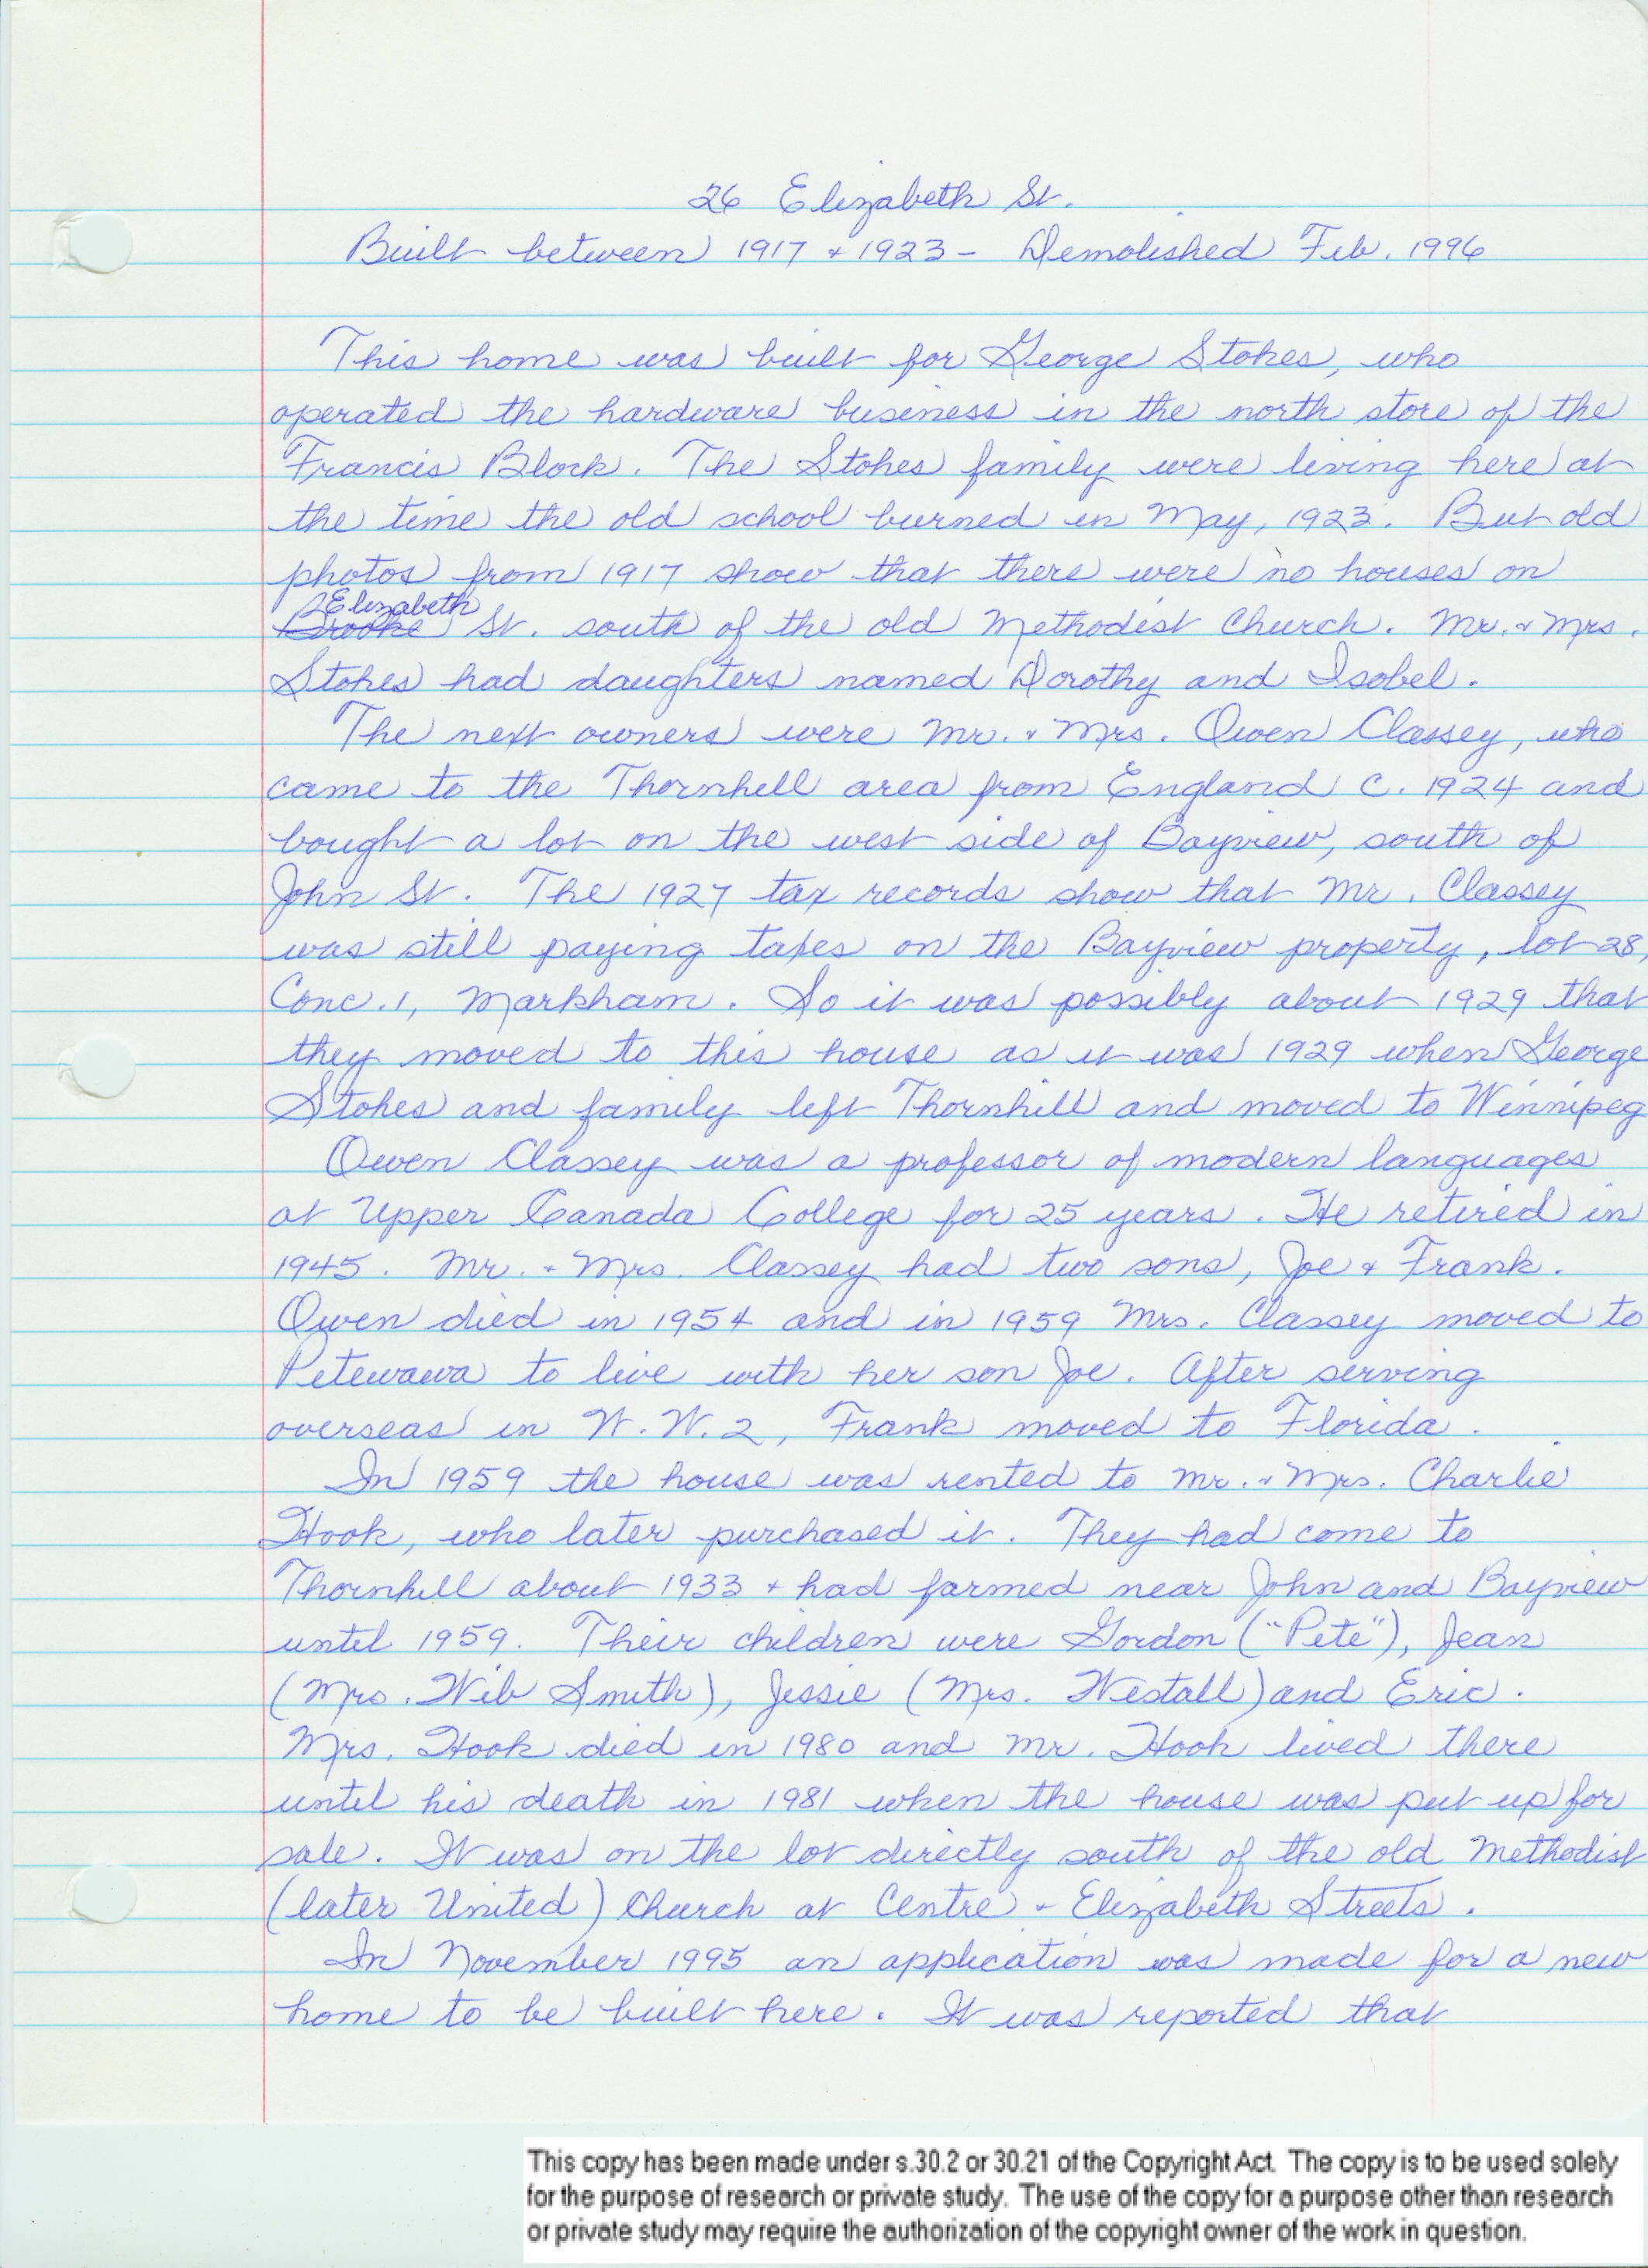 26 Elizabeth St.
Built between 1917 + 1923 - Demolished Feb. 1996
This home was built for George Stokes, who
operated the hardware business in the north store of the
Francis Block. The Stokes family were living here at
the time the old school burned in May, 1923. But old
photos from 1917 show that there were no houses on
Elizabeth
Brooke St. south of the old Methodist Church. Mr. + Mrs.
Stokes had daughters named Dorothy and Isobel.
The next owners were Mr. + Mrs. Owen Classey, who
came to the Thornhill area from England c. 1924 and
bought a lot on the west side of Bayview, south of
John St. The 1927 tax records show that Mr. Classey
was still paying taxes on the Bayview property, lot 28,
Conc. 1, Markham. So it was possibly about 1929 that
they moved to this house as it was 1929 when George
Stokes and family left Thornhill and moved to Winnipeg
Owen Classey was a professor of modern languages
at Upper Canada College for 25 years. He retired in
1945. Mr. + Mrs. Classey had two sons, Joe + Frank.
Owen died in 1954 and in 1959 Mrs. Classey moved to
Petewawa to live with her son Joe. After serving
overseas in W.W.2, Frank moved to Florida.
In 1959 the house was rented to Mr. + Mrs. Charlie
Hook, who later purchased it. They had come to
Thornhill about 1933 + had farmed near John and Bayview
until 1959. Their children were Gordon ("Pete"), Jean
(Mrs. Wib Smith), Jessie (Mrs. Westall) and Eric.
Mrs. Hook died in 1980 and Mr. Hook lived there
until his death in 1981 when the house was put up for
sale. It was on the lot directly south of the old Methodist
(later United) Church at Centre + Elizabeth Streets.
In November 1995 an application was made for a new
home to be built here. It was reported that
This copy has been made under s.30.2 or 30.21 of the Copyright Act. The copy is to be used solely
for the purpose of research or private study. The use of the copy for a purpose other than research
or private study may require the authorization of the copyright owner of the work in question.